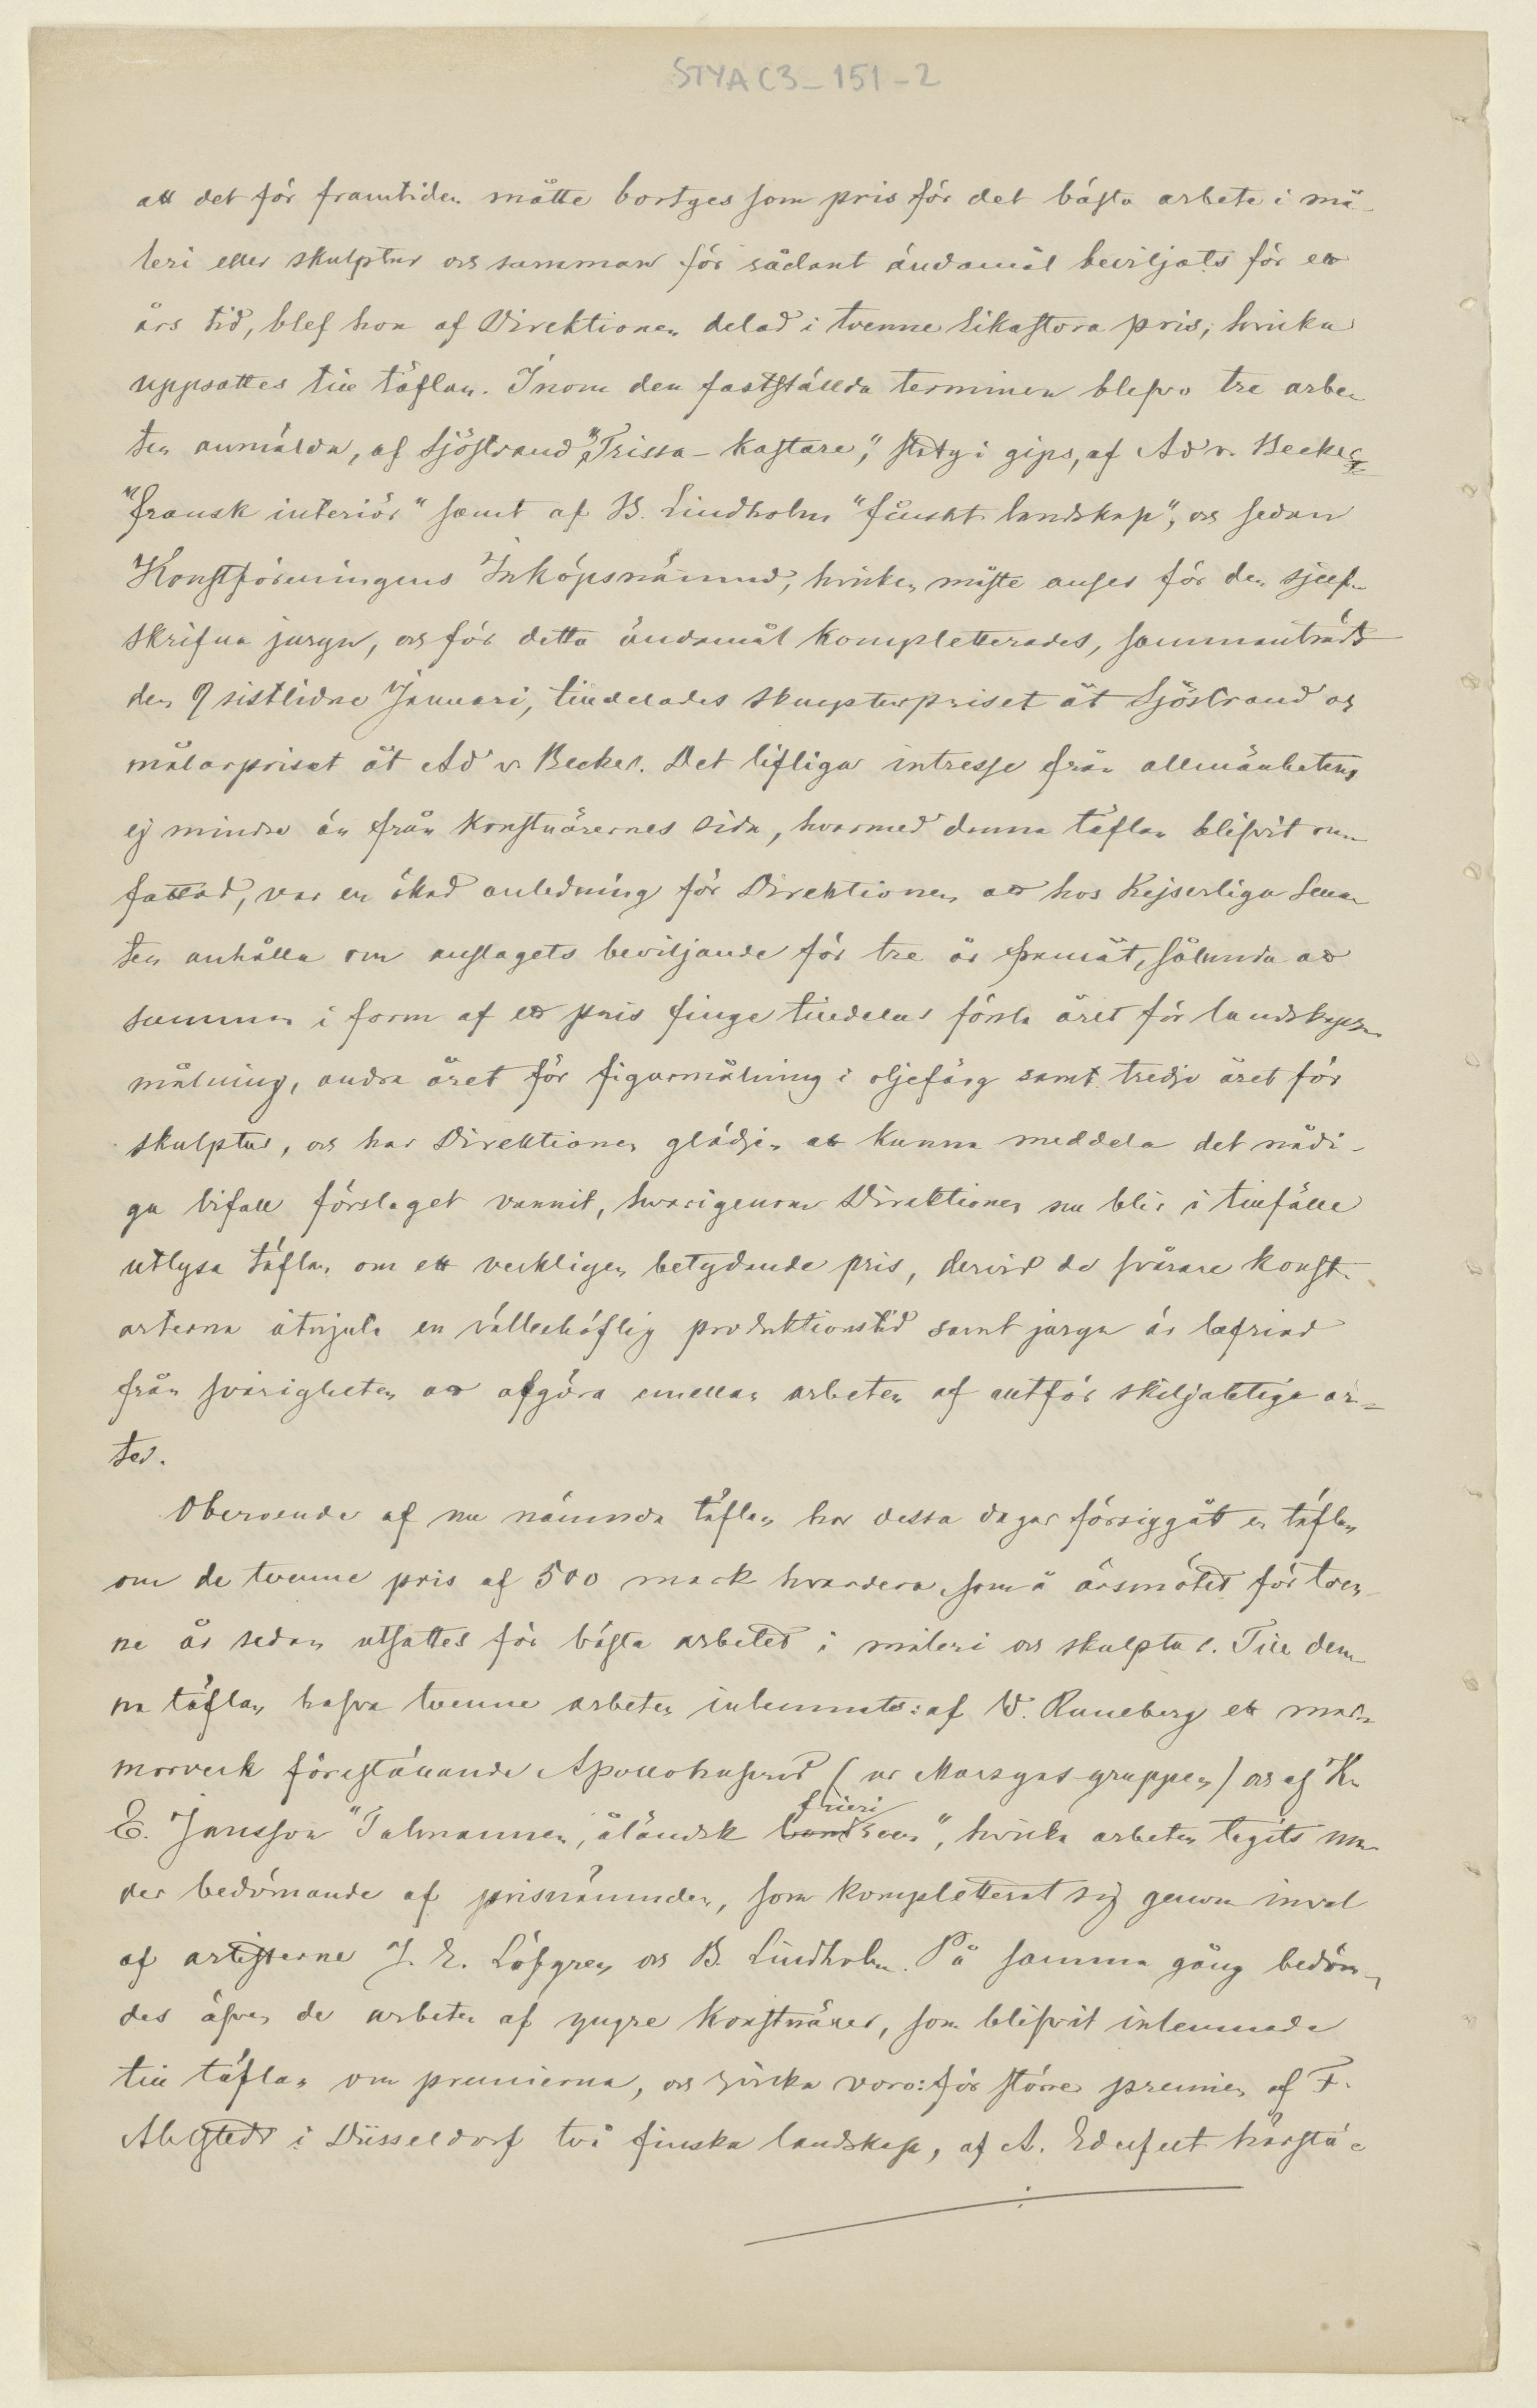 STYA C3_151-2
att det för framtiden måtte bortges som pris för det bästa arbete i må-
leri eller skulptur och summan för sådant ändamål beviljats för ett
års tid, blef hon af Direktionen delad i tvenne likastora pris, hvilka
uppsattes till täflan. Inom den fastställda terminen blefvo tre arbe-
ten anmälda, af Sjöstrand "Trissa-kastare", staty i gips, af Ad v. Becker
"fransk interiör" samt af B. Lindholm "finskt landskap", och sedan
Konstföreningens Inköpsnämnd, hvilken måste anses för den sjelf-
skrifna juryn, och för detta ändamål kompletterades, sammanträdt
den 9 sistlidne Januari, tilldelades skulpturpriset åt Sjöstrand och
målarpriset åt Ad v. Becker. Det lifliga intresse från allmänhetens
ej mindre än från konstnärernes sida, hvarmed denna täflan blifvit om-
fattad, var en ökad anledning för Direktionen att hos Kejserliga Sena-
ten anhålla om anslagets beviljande för tre år framåt, sålunda att
summan i form af ett pris finge tilldelas första året för landskaps-
målning, andra året för figurmålning i oljefärg samt tredje året för
skulptur, och har Direktionen glädjen att kunna meddela det nådi-
ga bifall förslaget vunnit, hvarigenom Direktionen nu blir i tillfälle
utlysa täflan om ett verkligen betydande pris, dervid de svårare konst-
arterna åtnjuta en välbehöflig produktionstid samt juryn är befriad
från svårigheten att afgöra emellan arbeten af alltför skiljaktiga ar-
ter.
Oberoende af nu nämnda täflan har dessa dagar försiggått en täflan
om de tvenne pris af 500 mark hvardera, som å årsmötet för tven-
ne år sedan utsattes för bästa arbetet i måleri och skulptur. Till den-
na täflan hafva tvenne arbeten inlemnats: af W. Runeberg ett mar-
morverk föreställande Apollohufvud (ur Marsyas-gruppen) och af K.
E. Jansson "Talmannen, åländsk frieri scen", hvilka arbeten tagits un-
der bedömande af prisnämnden, som kompletterat sig genom inval
af artisterne J. E. Löfgren och B. Lindholm. På samma gång bedöm-
des äfven de arbeten af yngre konstnärer, som blifvit inlemnade
till täflan om premierna, och hvilka voro: för större premien af F.
Ahlstedt i Düsseldorf två finska landskap, af A. Edelfelt härstä-